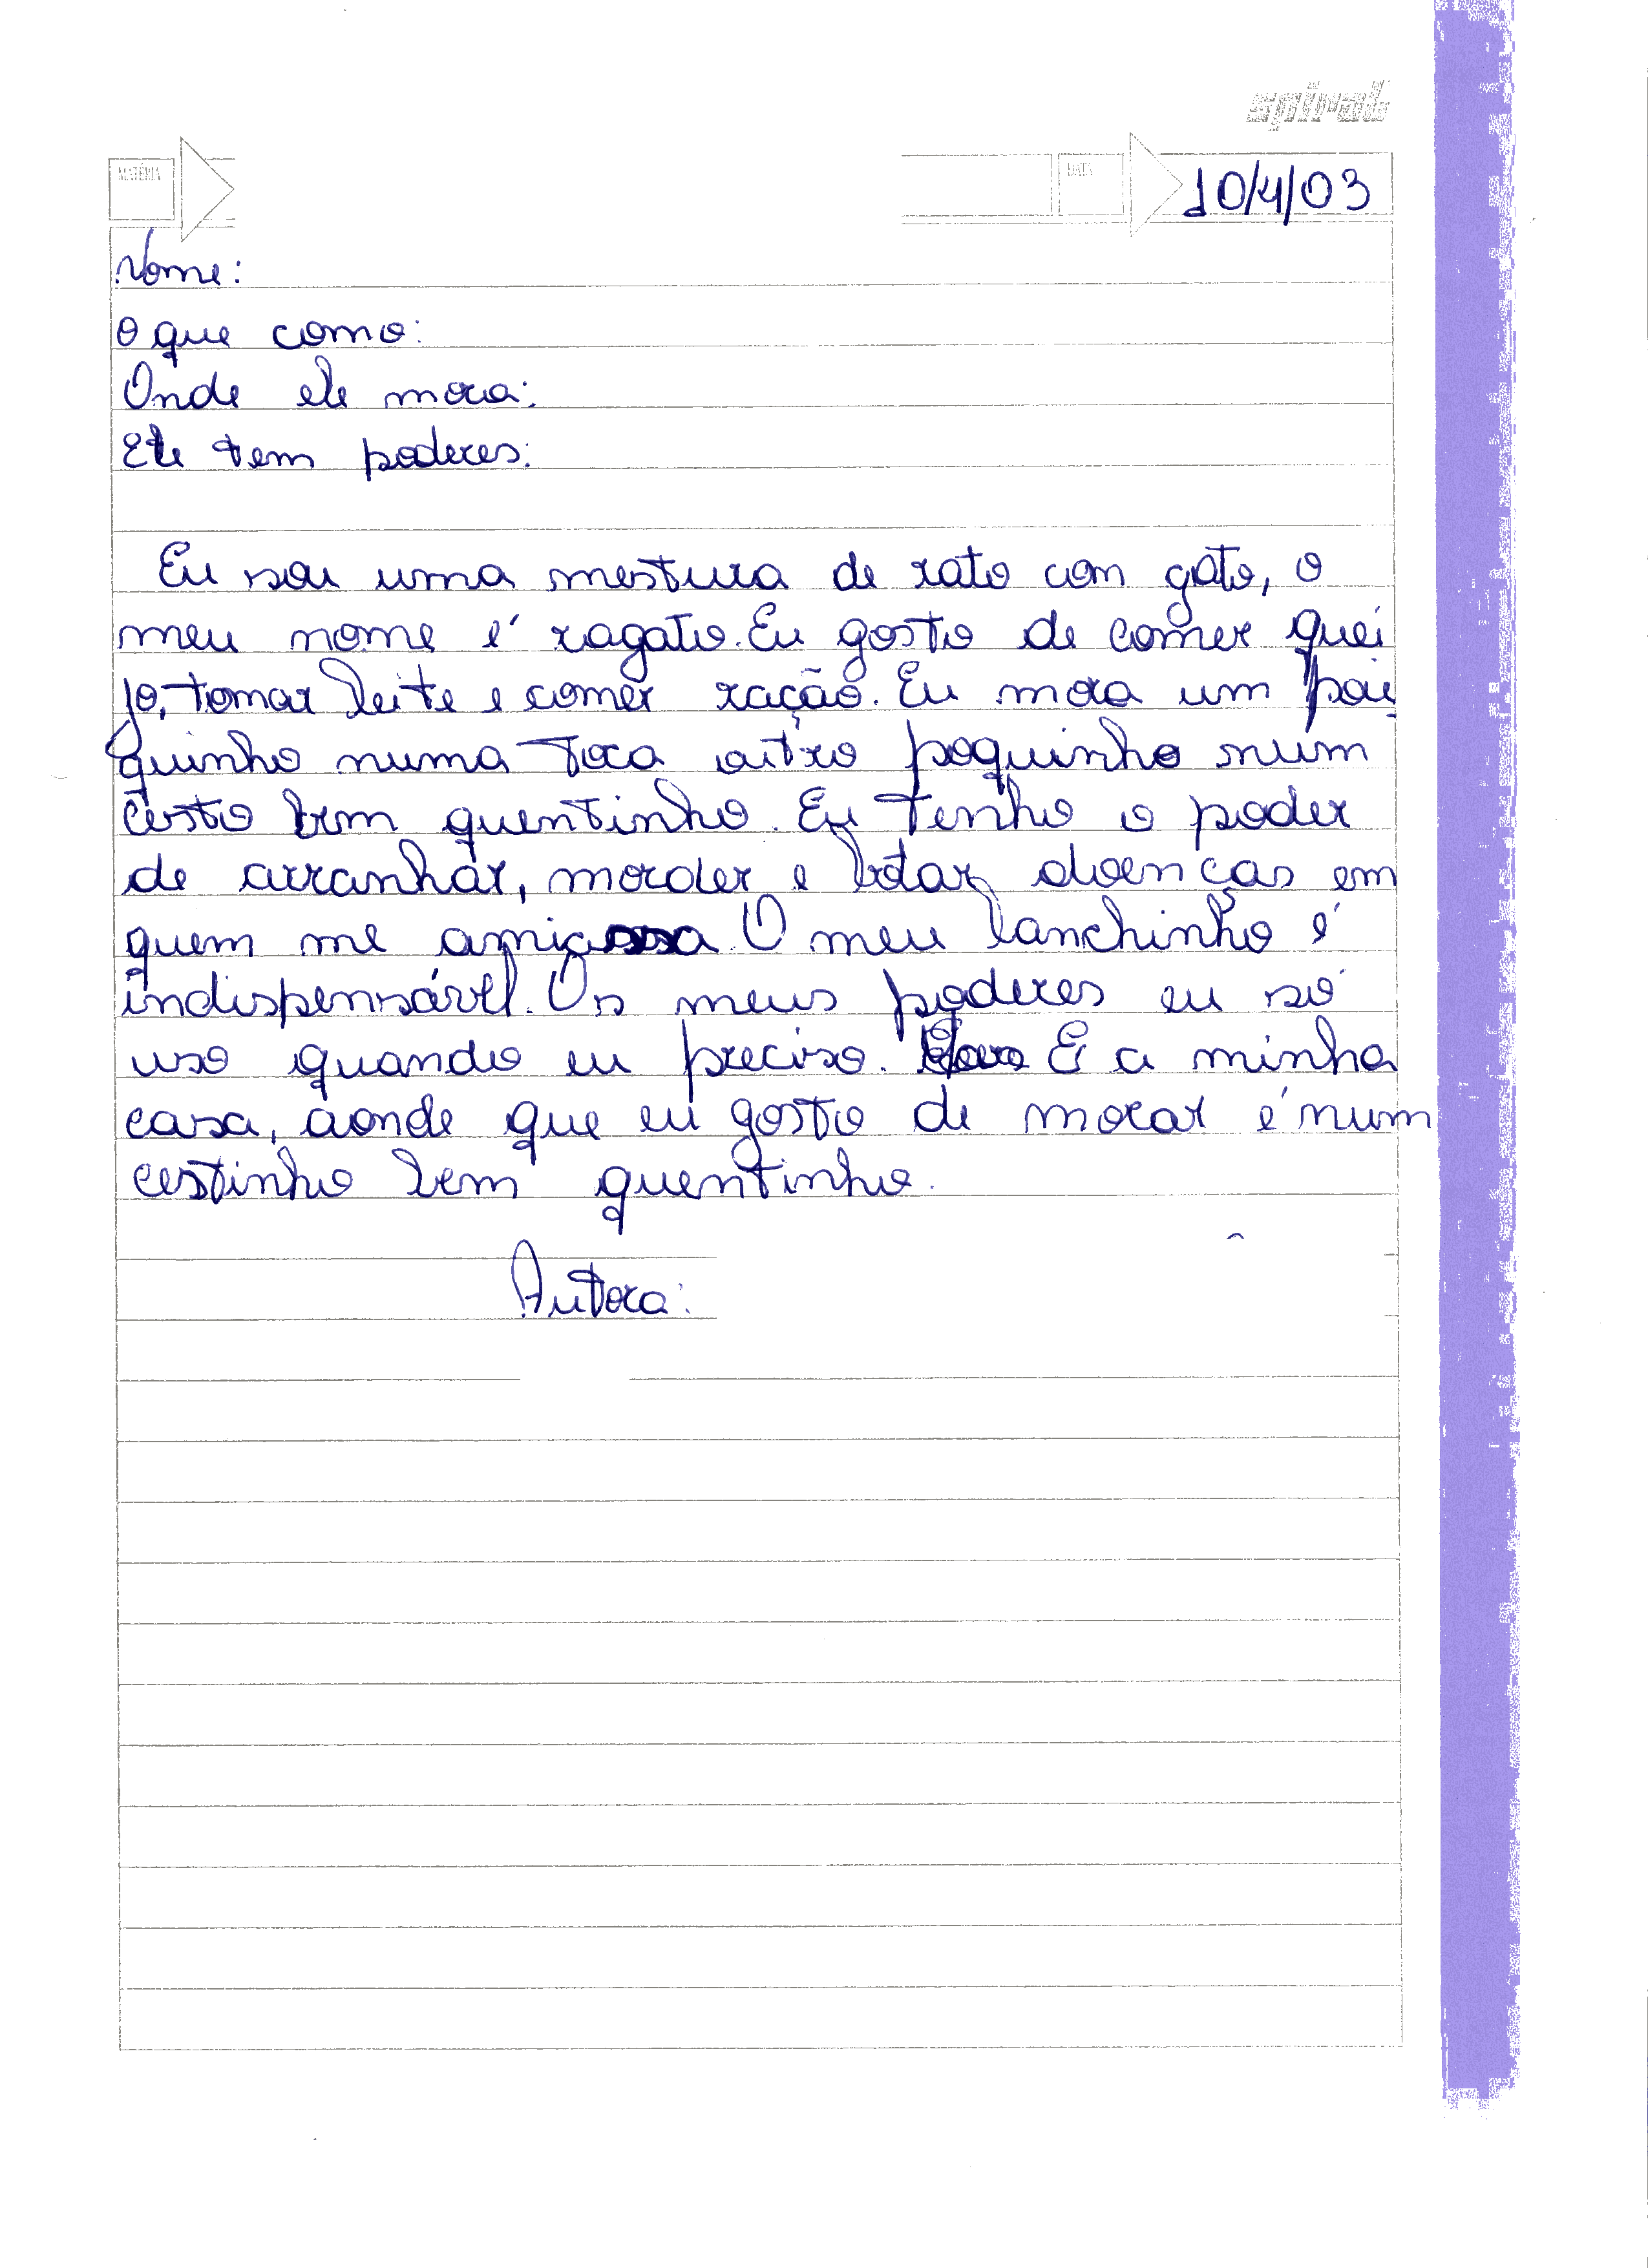 spiral
MATÉRIA
DATA
10/4/03
Nome:
O que como:
Onde ele mora:
Ele tem poderes:
Eu sou uma mestura de rato com gato, o
meu nome é ragato. Eu gosto de comer quei
jo, tomar leite e comer ração. Eu mora um pou
quinho numa toca outro poquinho num
cesto bem quentinho. Eu tenho o poder
de arranhar, morder e botar doenças em
quem me amiassa. O meu lanchinho é
indispensável. Os meus poderes eu só
uso quando eu preciso. E a minha
casa, aonde que eu gosto de morar é num
cestinho bem quentinho.
Autora: